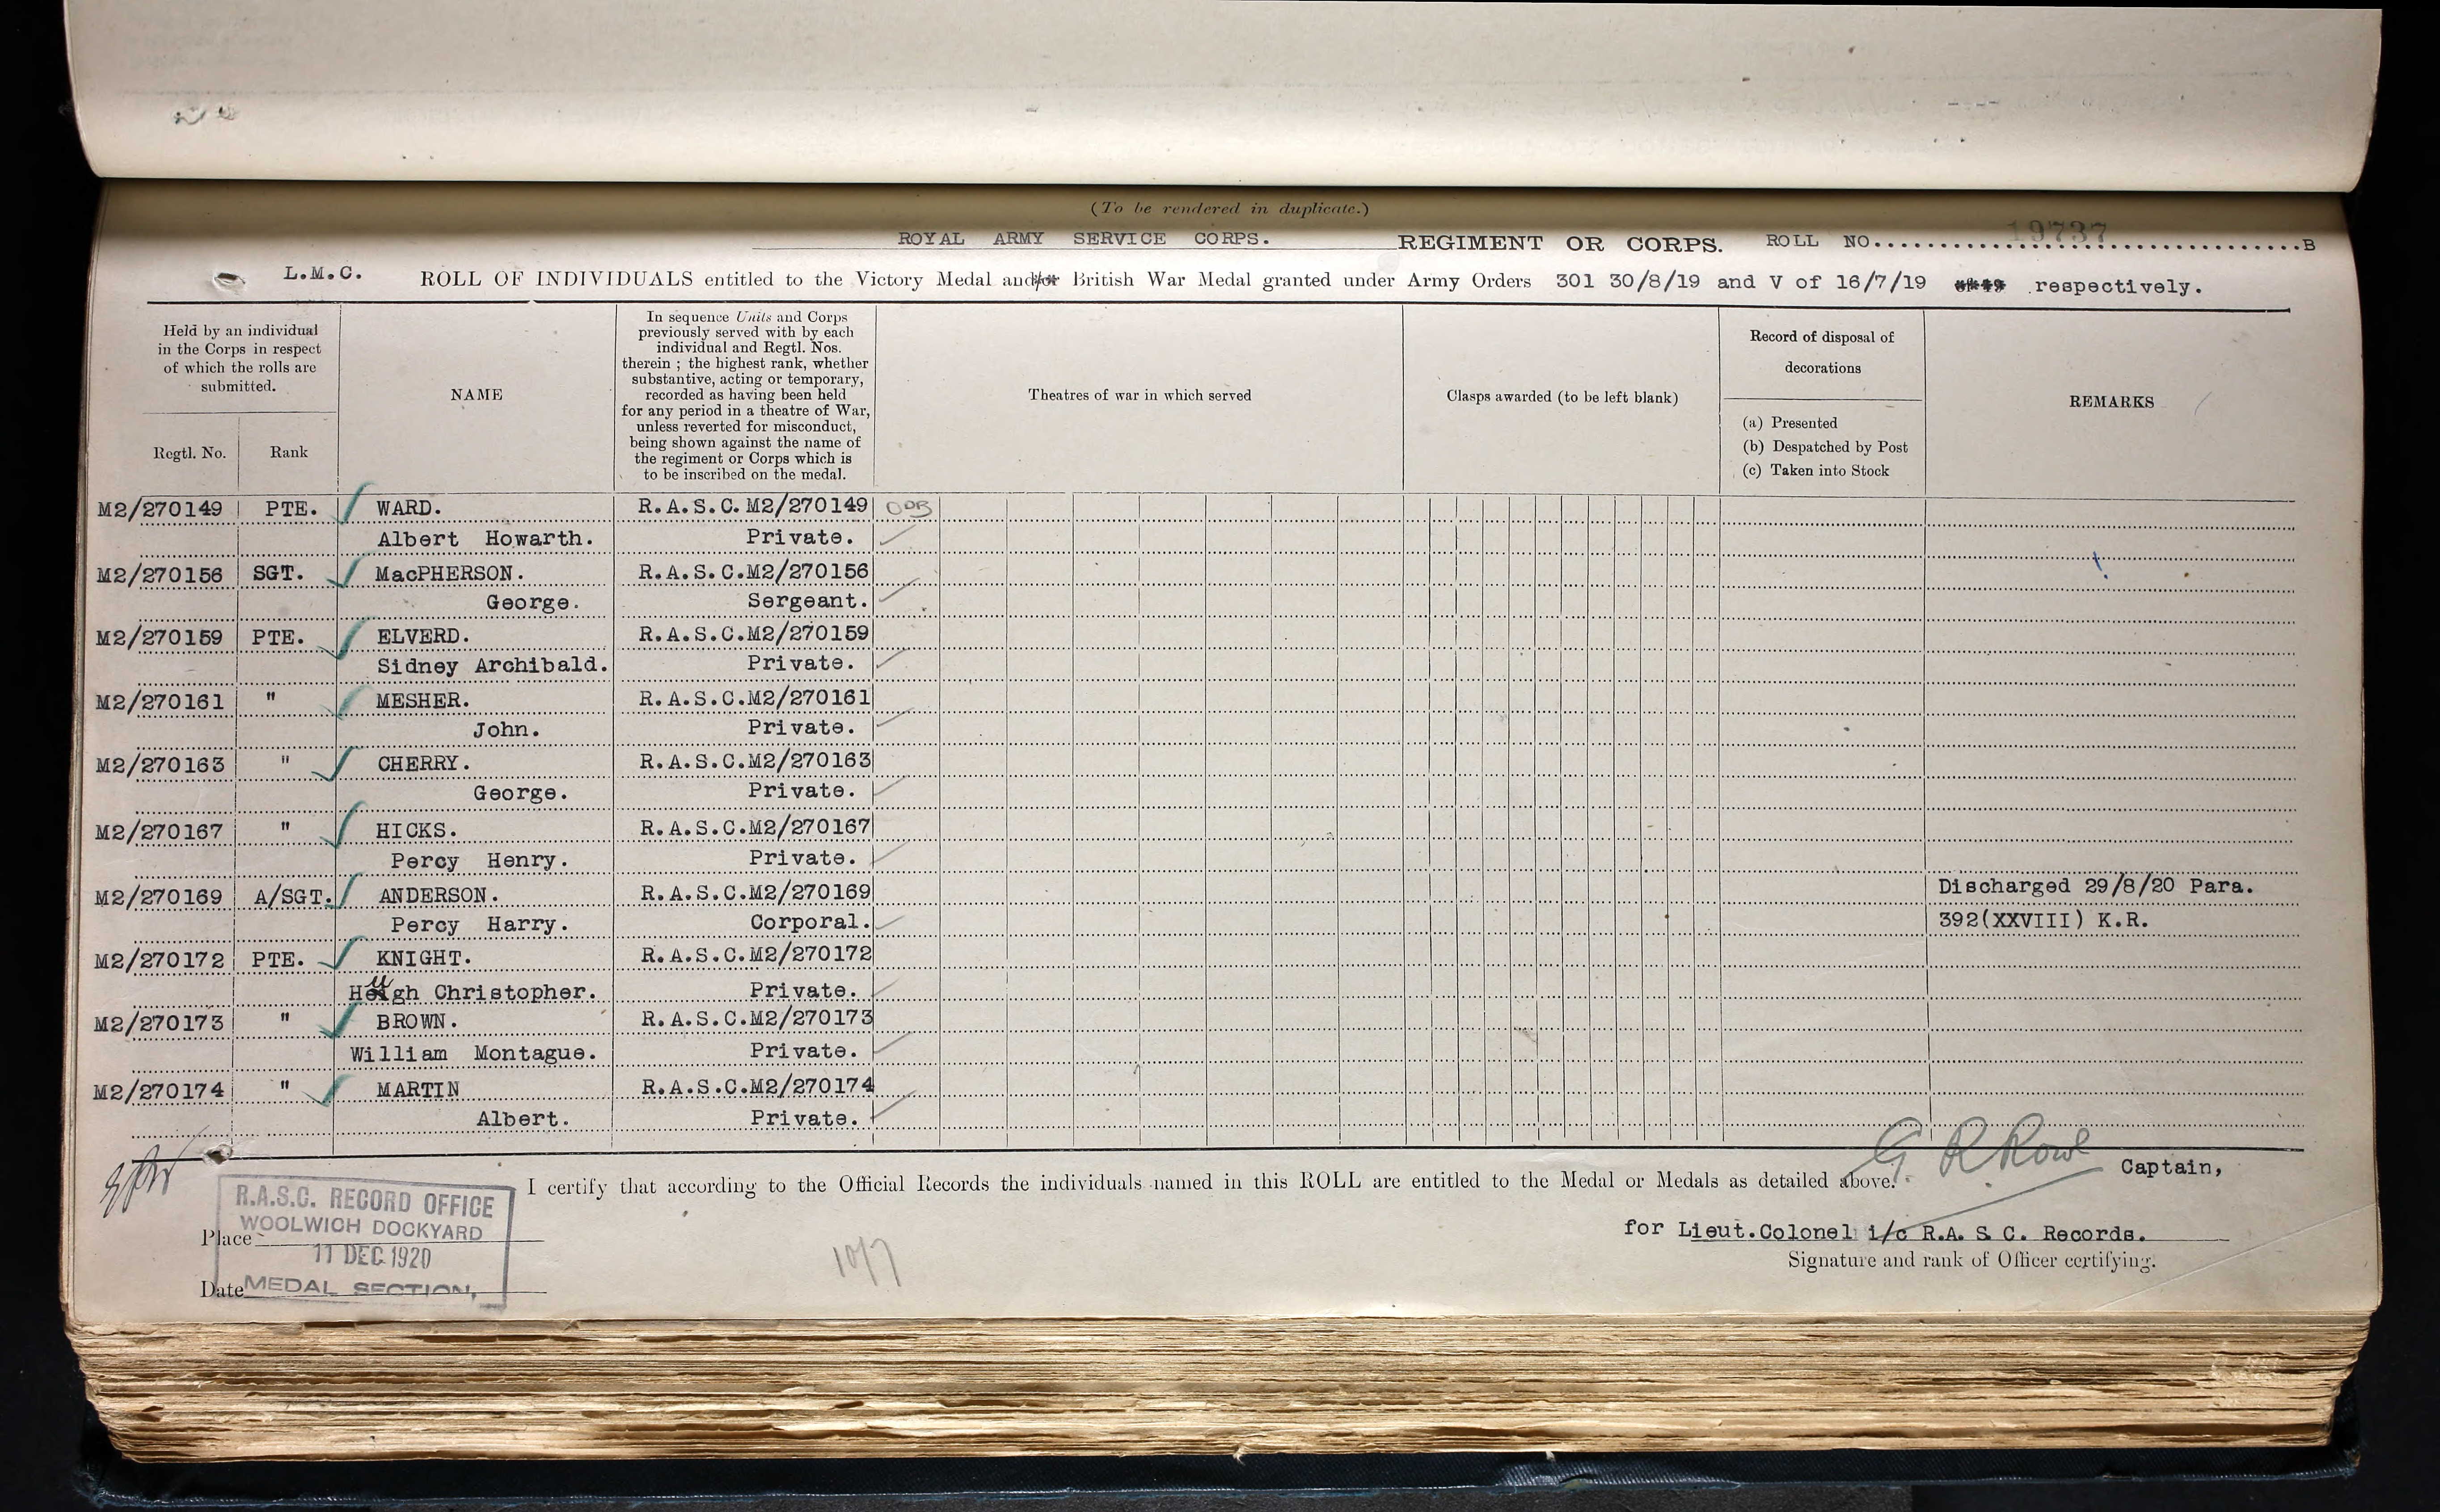 (To be rendered in duplicate.)
ROYAL ARMY SERVICE CORPS. REGIMENT OR CORPS. ROLL NO. 19737 B
L.M.C. ROLL OF INDIVIDUALS entitled to the Victory Medal and/or British War Medal granted under Army Orders 301 30/8/19 and V of 16/7/19 respectively.
Held by an individual
in the Corps in respect
of which the rolls are
submitted.
Regtl. No.
Rank
NAME
In sequence Units and Corps
previously served with by each
individual and Regtl. Nos.
therein ; the highest rank, whether
substantive, acting or temporary,
recorded as having been held
for any period in a theatre of War,
unless reverted for misconduct,
being shown against the name of
the regiment or Corps which is
to be inscribed on the medal.
Theatres of war in which served
Clasps awarded (to be left blank)
Record of disposal of
decorations
(a) Presented
(b) Despatched by Post
(c) Taken into Stock
REMARKS
M2/270149 PTE. WARD. R.A.S.C.M2/270149
Albert Howarth. Private.
M2/270156 SGT. MacPHERSON. R.A.S.C.M2/270156
George. Sergeant.
M2/270159 PTE. ELVERD. R.A.S.C.M2/270159
Sidney Archibald. Private.
M2/270161 " MESHER. R.A.S.C.M2/270161
John. Private.
M2/270163 " CHERRY. R.A.S.C.M2/270163
George. Private.
M2/270167 " HICKS. R.A.S.C.M2/270167
Percy Henry. Private.
M2/270169 A/SGT. ANDERSON. R.A.S.C.M2/270169 Discharged 29/8/20 Para.
Percy Harry. Corporal. 392(XXVIII) K.R.
M2/270172 PTE. KNIGHT. R.A.S.C.M2/270172
Hugh Christopher. Private.
M2/270173 " BROWN. R.A.S.C.M2/270173
William Montague. Private.
M2/270174 " MARTIN R.A.S.C.M2/270174
Albert. Private.
I certify that according to the Official Records the individuals named in this ROLL are entitled to the Medal or Medals as detailed above.
G R Rowe Captain,
R.A.S.C. RECORD OFFICE
WOOLWICH DOCKYARD
11 DEC 1920
MEDAL SECTION.
Place
Date
10/7
for Lieut.Colonel i/c R.A.S.C. Records.
Signature and rank of Officer certifying.